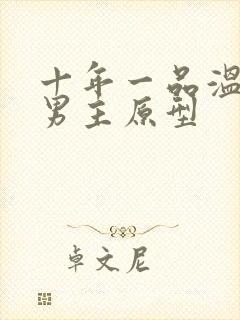 十年一品温
男主原型
卓文尼